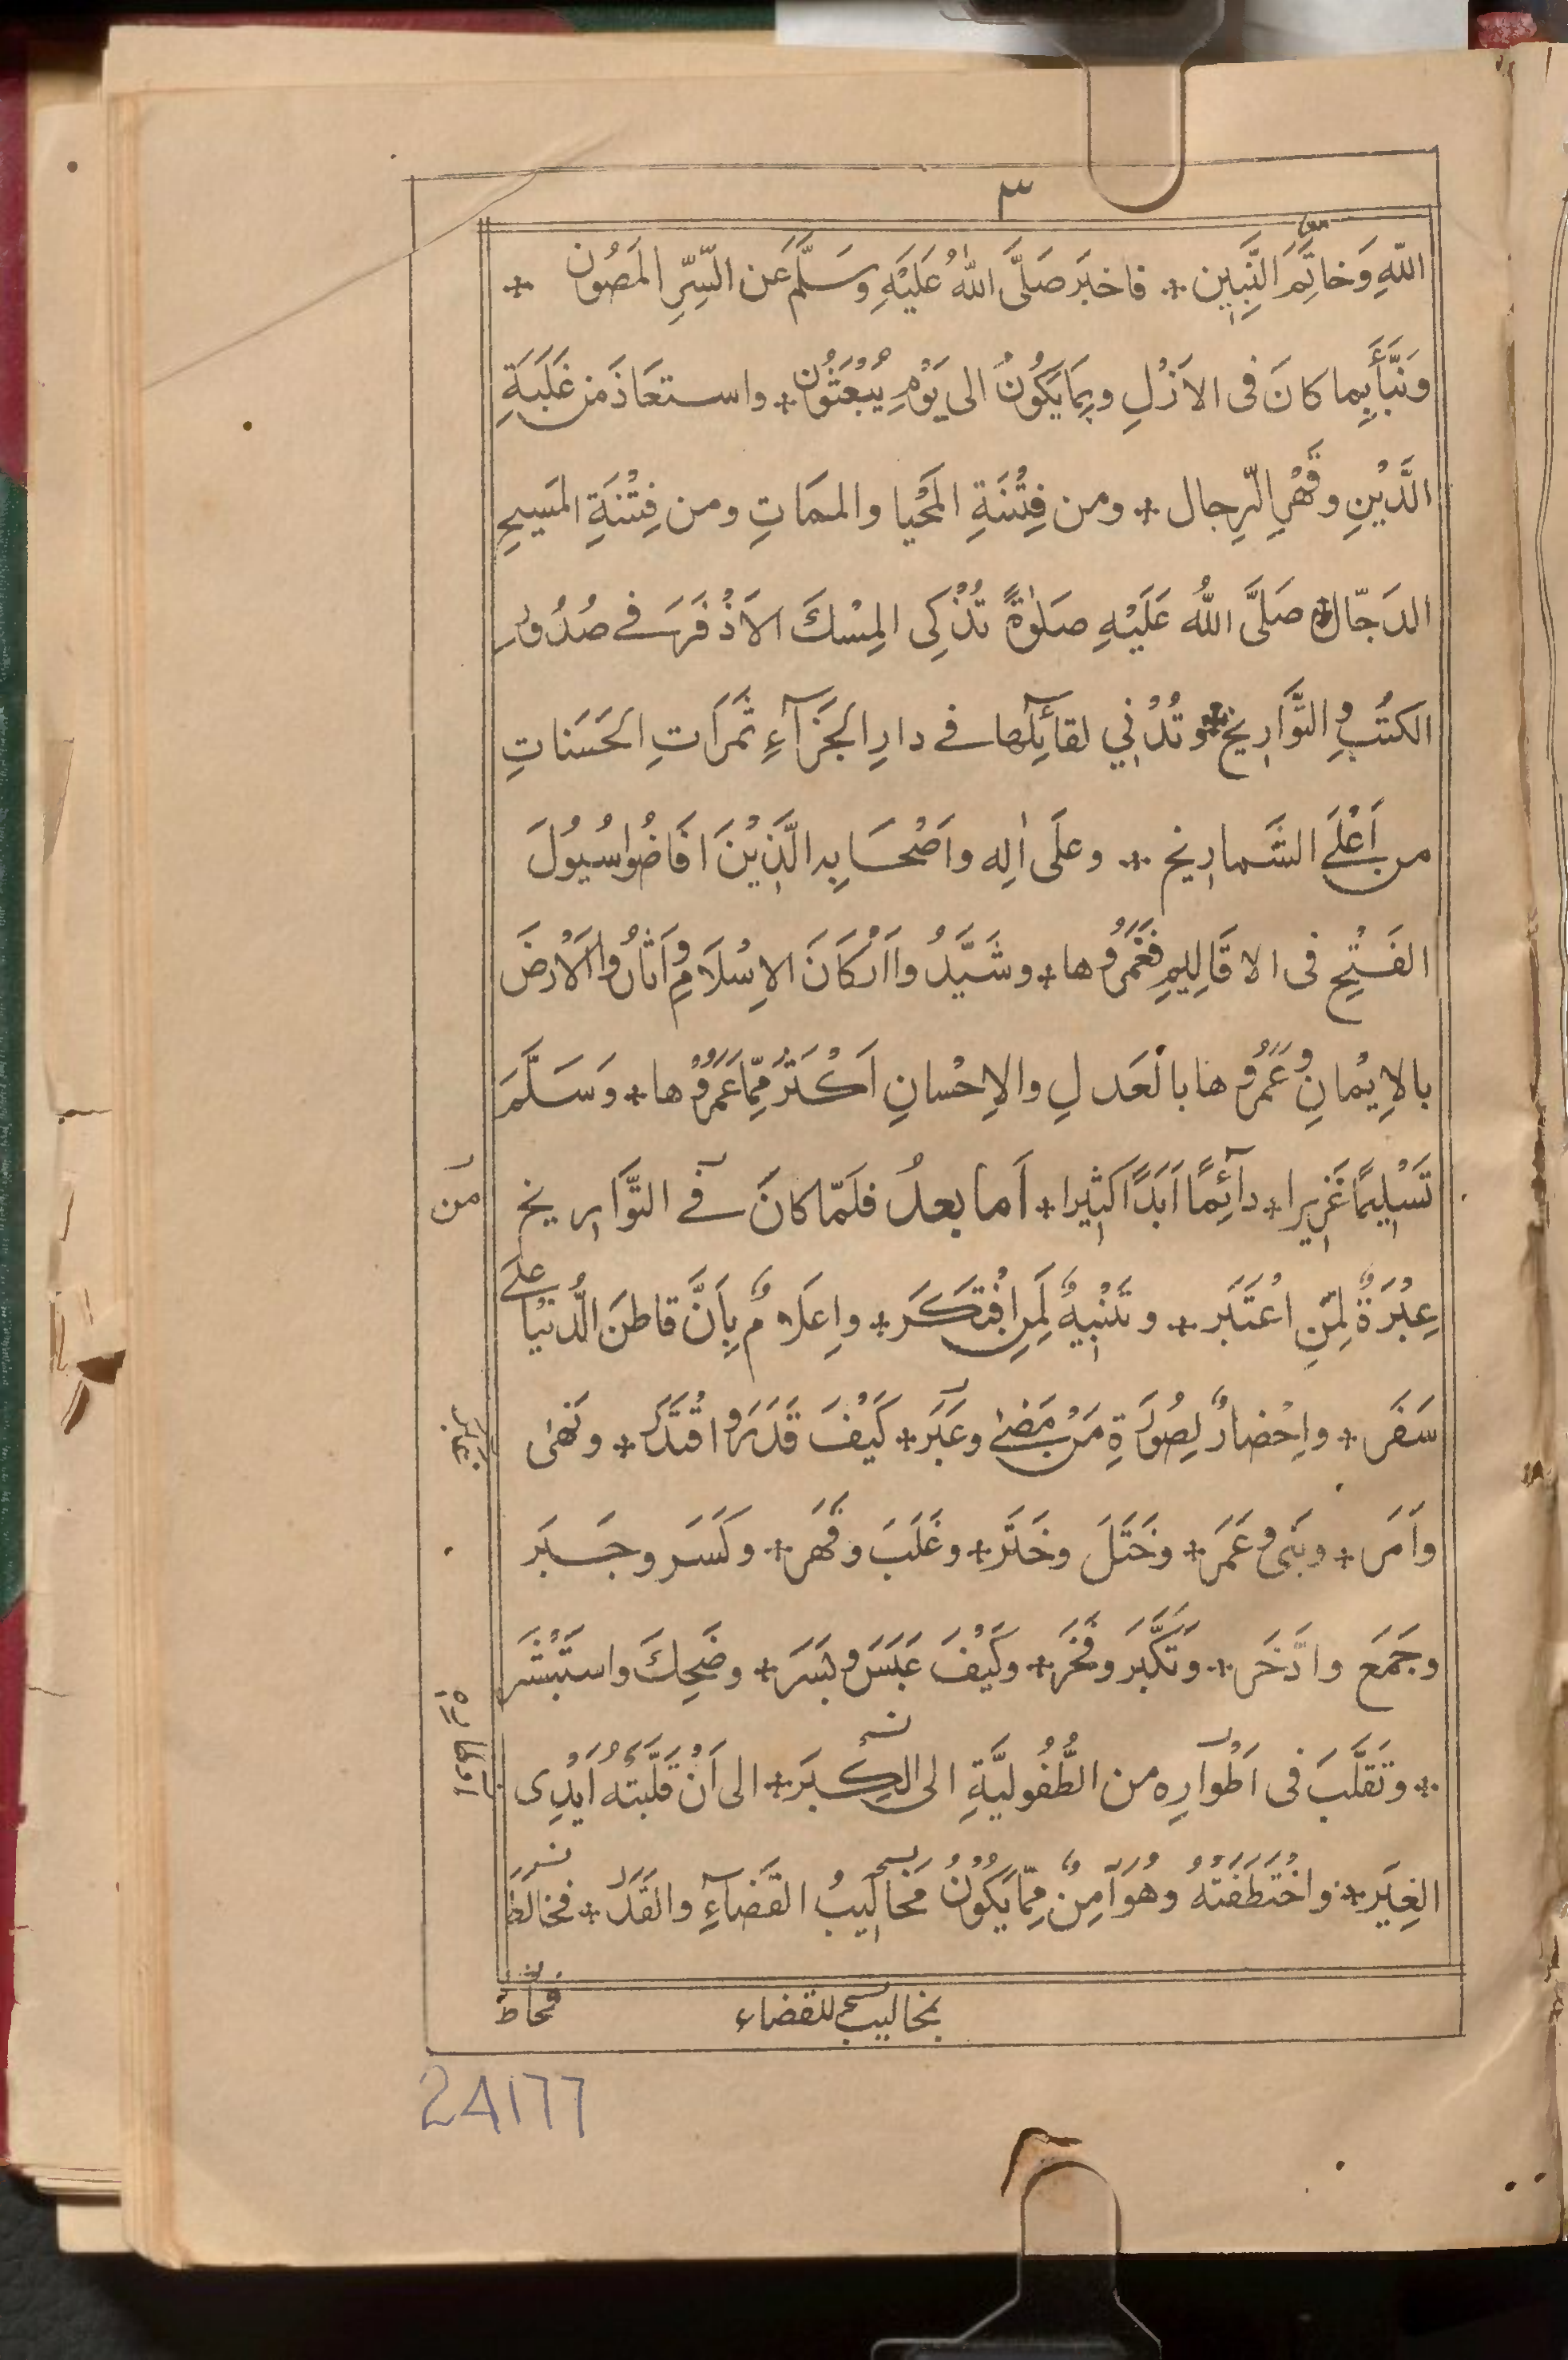 ٣
اللهِ وَخاتَِمَ النَّبِيين ٭ فاخبَر صَلَّى اللهُ عَلَيْهِ وسَلَّم عَن السِّرِّ المَصُون ٭
ونَبَّأَ بِما كانَ فى الاَزْلِ وبِمَا يَكُونُ الى يَوْمِ يُبْعَثُون ٭ واستعَاذَ من غَلَبَةِ
الدَّيْنِ وقَهْرِ الرِّجال ٭ ومن فِتْنَةِ المَحْيا والممَاتِ ومن فِتْنَةِ المَسيحِ
الدَجّال ٭ صَلَّى اللهُ عَلَيْهِ صَلوٰةً تُذْكِى المِسْكَ الاَذْفَرَ فے صُدُورِ
الكتُبِ والتَّوَارِيخ ٭ وتُدْنِي لقآئِلها فے دارِ الجَزآءِ ثَمَرَاتِ الحَسَناتِ
من اَعْلَے الشَمارِيخ ٭ وعلَى اٰلِه واَصْحَابِه الَّذِيْنَ افَاضُوا سُيُولَ
الفَتْحِ فى الاقَالِيمِ فغَمَرُوها ٭ وشَيَّدُوا اَرْكَانَ الاِسْلَامِ واَثَارُوا الاَرْضَ
بالاِيْمانِ وعَمَرُوها بالعَدلِ والاِحْسانِ اَكْثَرَ مِمّا عَمَرُوْها ٭ وَسَلَّمَ
تَسْلِيمًا غَزِيرا ٭ دآئِمًا اَبَدًا كثِيرا ٭ اَما بعدُ فلَمّا كانَ فے التَّوَاريخ
من
عِبْرَةٌ لِمَنِ اعْتَبَر ٭ وتَنْبِيهٌ لِمَنِ افْتَكَر ٭ واِعلَامٌ بِاَنَّ قاطنَ الدُّنْيا علے
سَفَر ٭ واِحْضارٌ لِصُورَةِ مَنْ مَضےٰ وعَبَر ٭ كَيْفَ قَدَرَ واقْتَدَر ٭ ونَهى
غابر
واَمَر ٭ وبَنٰى وعَمَر ٭ وخَتَلَ وخَتَر ٭ وغَلَبَ وقَهَر ٭ وكَسَر وجَبَر
وجَمَع وادّخَر ٭ وَتَكَّبَر وفَخَر ٭ وكَيْفَ عَبَسَ وبَسَر ٭ وضَحِكَ واستَبْشَر
٭ وتَقَلَّبَ فى اَطْوارِه من الطُّفُولِيَّةِ الى الكِبَر ٭ الى اَنْ قَلَّبَتْهُ اَيْدِى
اوطاره
الغِيَر ٭ واخْتَطَفَتْهُ وهُوَ آمِنٌ مِمّا يَكُوْنُ مَخالِيبُ القَضآءِ والقَدَر ٭ فخالط
بمخاليب للقضاء
24177